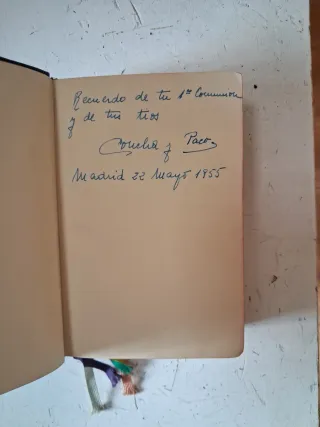 Recuerdo de tu 1ª Comunion
y de tus tios
Concha y Paco
Madrid 22 Mayo 1955